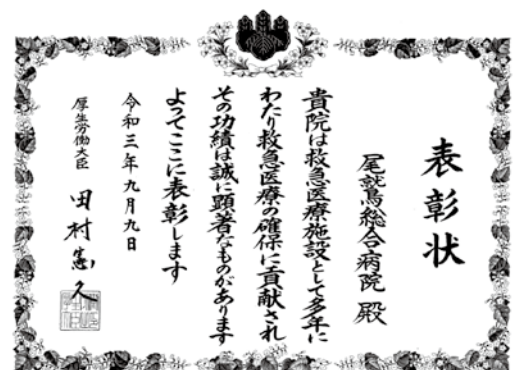 表彰状
尾鷲総合病院 殿
貴院は救急医療施設として多年に
わたり救急医療の確保に貢献され
その功績は誠に顕著なものがあります
よってここに表彰します
令和三年九月九日
厚生労働大臣 田村憲久